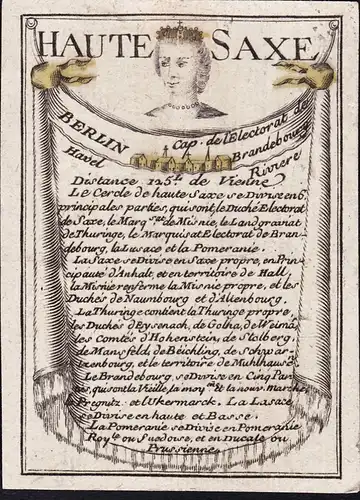 HAUTE SAXE
BERLIN Cap. de l'Electorat de
Havel Brandebourg
Riviere
Distance 125 de Vienne
Le Cercle de haute Saxe se Divise en 6
principales parties, qui sont, le Duché Electorat
de Saxe, le Marq.sat de Misnie, le Landgraviat
de Thuringe, le Marquisat Electorat de Bran-
debourg, la Lusace et la Pomeranie.
La Saxe se Divise en Saxe propre, en Prin-
cipauté d'Anhalt, et en territoire de Hall,
la Misnie renferme la Misnie propre, et les
Duchés de Naumbourg et d'Altenbourg.
La Thuringe contient la Thuringe propre,
les Duchés d'Eysenach, de Gotha, de Weimar
les Comtés d'Hohenstein, de Stolberg,
de Mansfeld, de Beichling, de Schwar-
tzenbourg, et le territoire de Mulhausen
Le Brandebourg se Divise en Cinq Par-
ties, qui sont la Vieille, la moy.ne et la nouv. marche
le Pregnitz et Ukermarck. La Lasace
se Divise en haute et Basse.
La Pomeranie se Divise en Pomeranie
Roy.le ou Suedoise, et en Ducale ou
Prussienne.